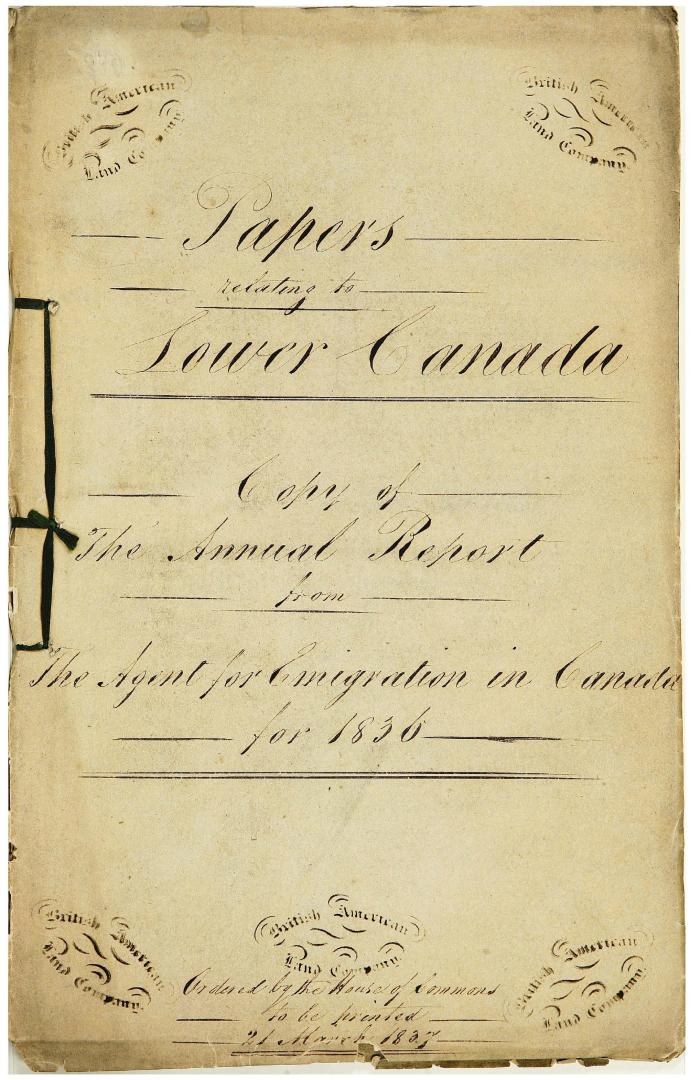 British American
Land Company
British American
Land Company
Papers
relating to
Lower Canada
Copy of
The Annual Report
from
The Agent for Emigration in Canada
for 1836
British American
Land Company
British American
Land Company
British American
Land Company
Ordered by the House of Commons
to be printed
21 March 1837